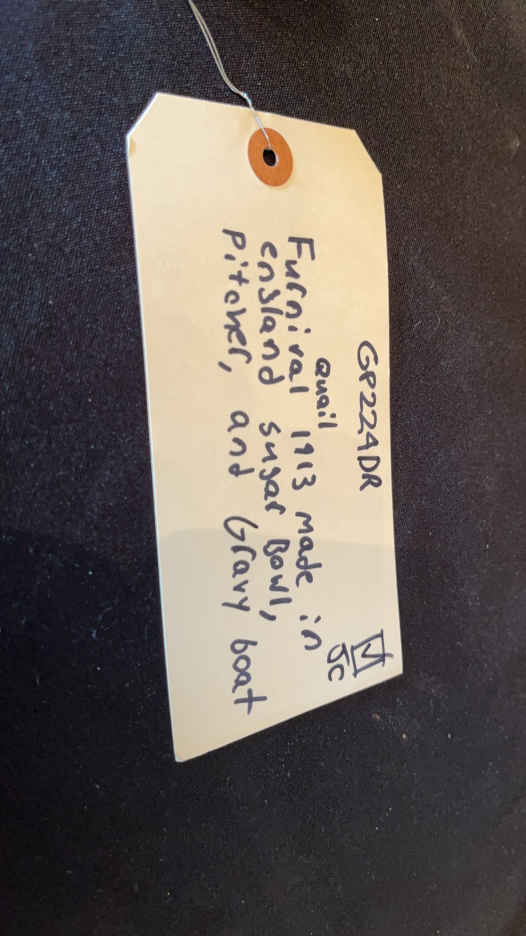 GP224DR
JC
Quail
Furnival 1913 made in
england sugar Bowl,
Pitcher, and Gravy boat